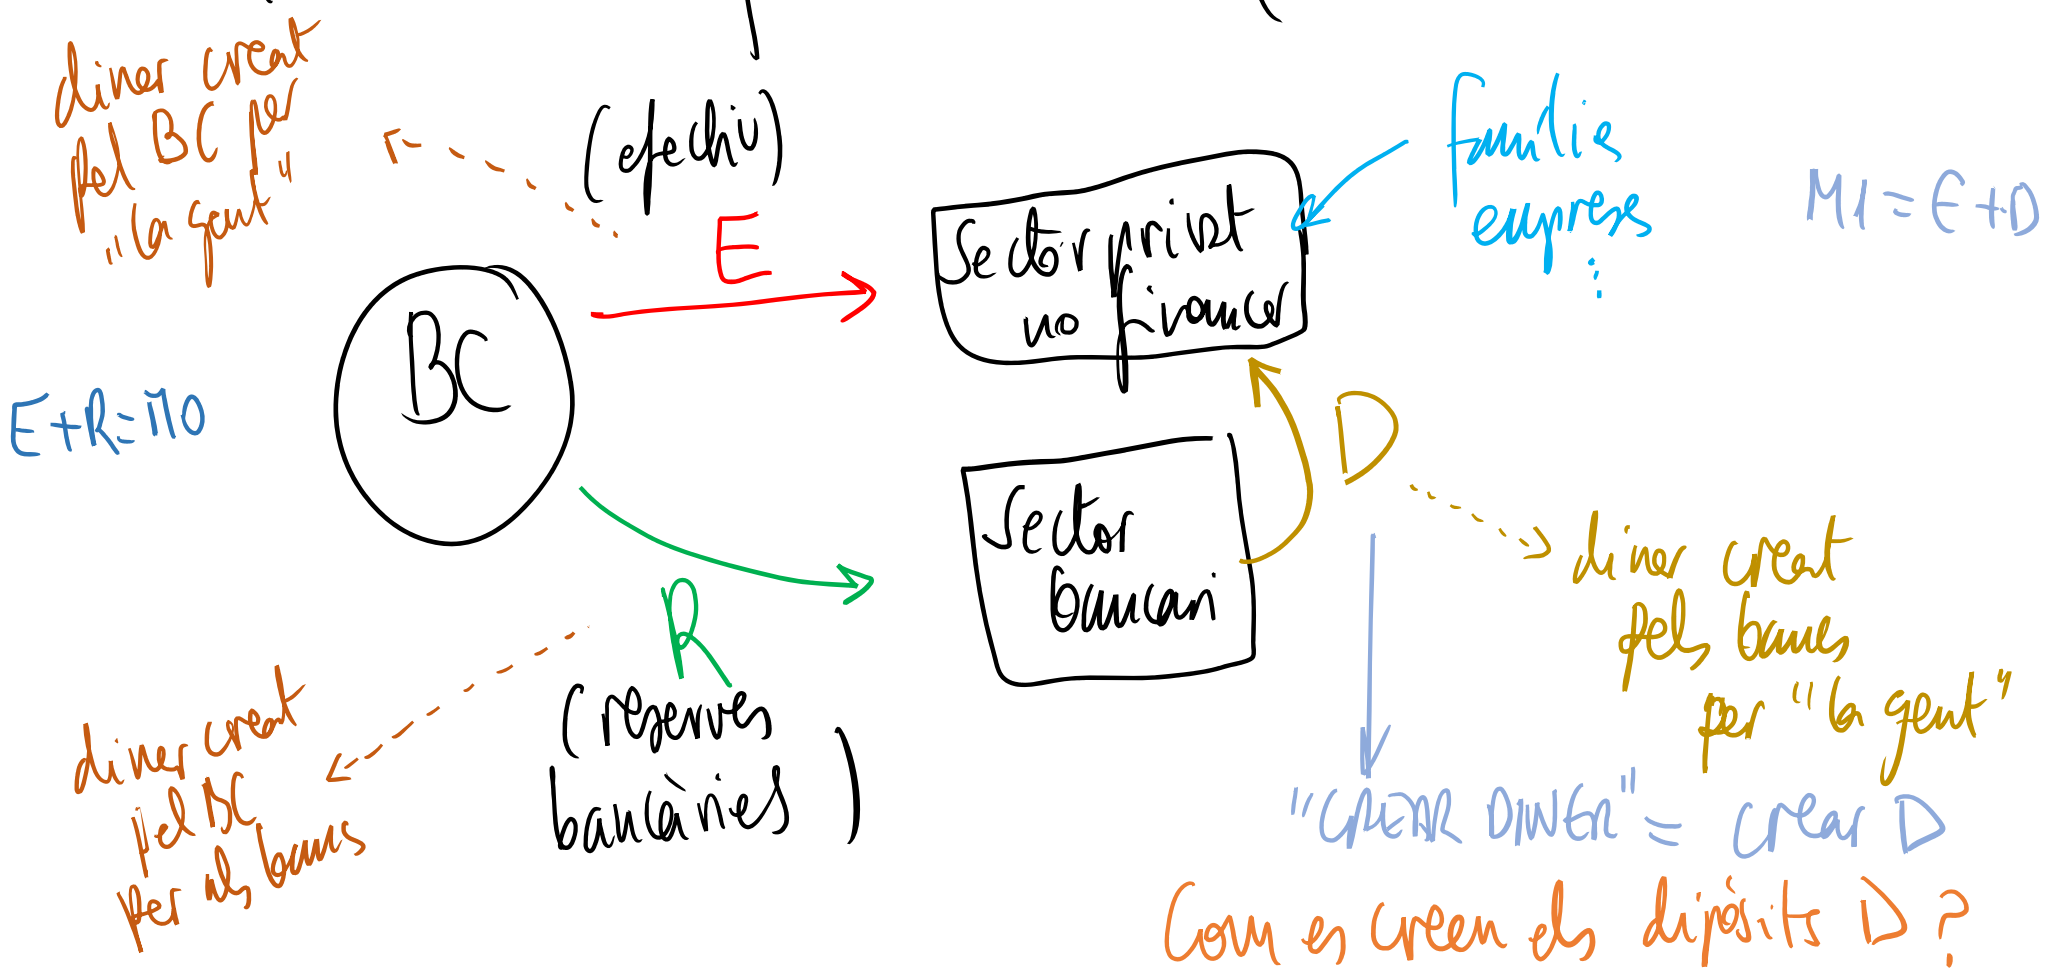 diner creat
pel BC per
"la gent"
(efectiu)
E
Sector privat
no financer
família
empreses
⋮
M1 = E+D
BC
E+R=M0
D
Sector
bancari
R
(reserves
bancàries)
diner creat
pel BC
per als bancs
diner creat
pels bancs
per "la gent"
"CREAR DINER" = crear D
Com es creen els dipòsits D?